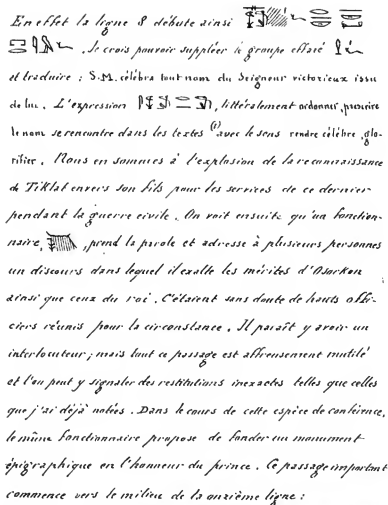 En effet la ligne 8 débute ainsi
. Je crois pouvoir suppléer le groupe effacé
et traduire : S.M. célébra tout nom du Seigneur victorieux issu
de lui. L'expression , littéralement ordonner, prescrire
le nom se rencontre dans les textes (1) avec le sens rendre célèbre, glo-
rifier. Nous en sommes à l'explosion de la reconnaissance
de Tiklat envers son fils pour les services de ce dernier
pendant la guerre civile. On voit ensuite qu'un fonction-
naire, , prend la parole et adresse à plusieurs personnes
un discours dans lequel il exalte les mérites d'Osorkon
ainsi que ceux du roi. C'étaient sans doute de hauts offi-
ciers réunis pour la circonstance. Il paraît y avoir un
interlocuteur ; mais tout ce passage est affreusement mutilé
et l'on peut y signaler des restitutions inexactes telles que celles
que j'ai déjà notées. Dans le cours de cette espèce de conférence,
le même fonctionnaire propose de fonder un monument
épigraphique en l'honneur du prince. Ce passage important
commence vers le milieu de la onzième ligne :